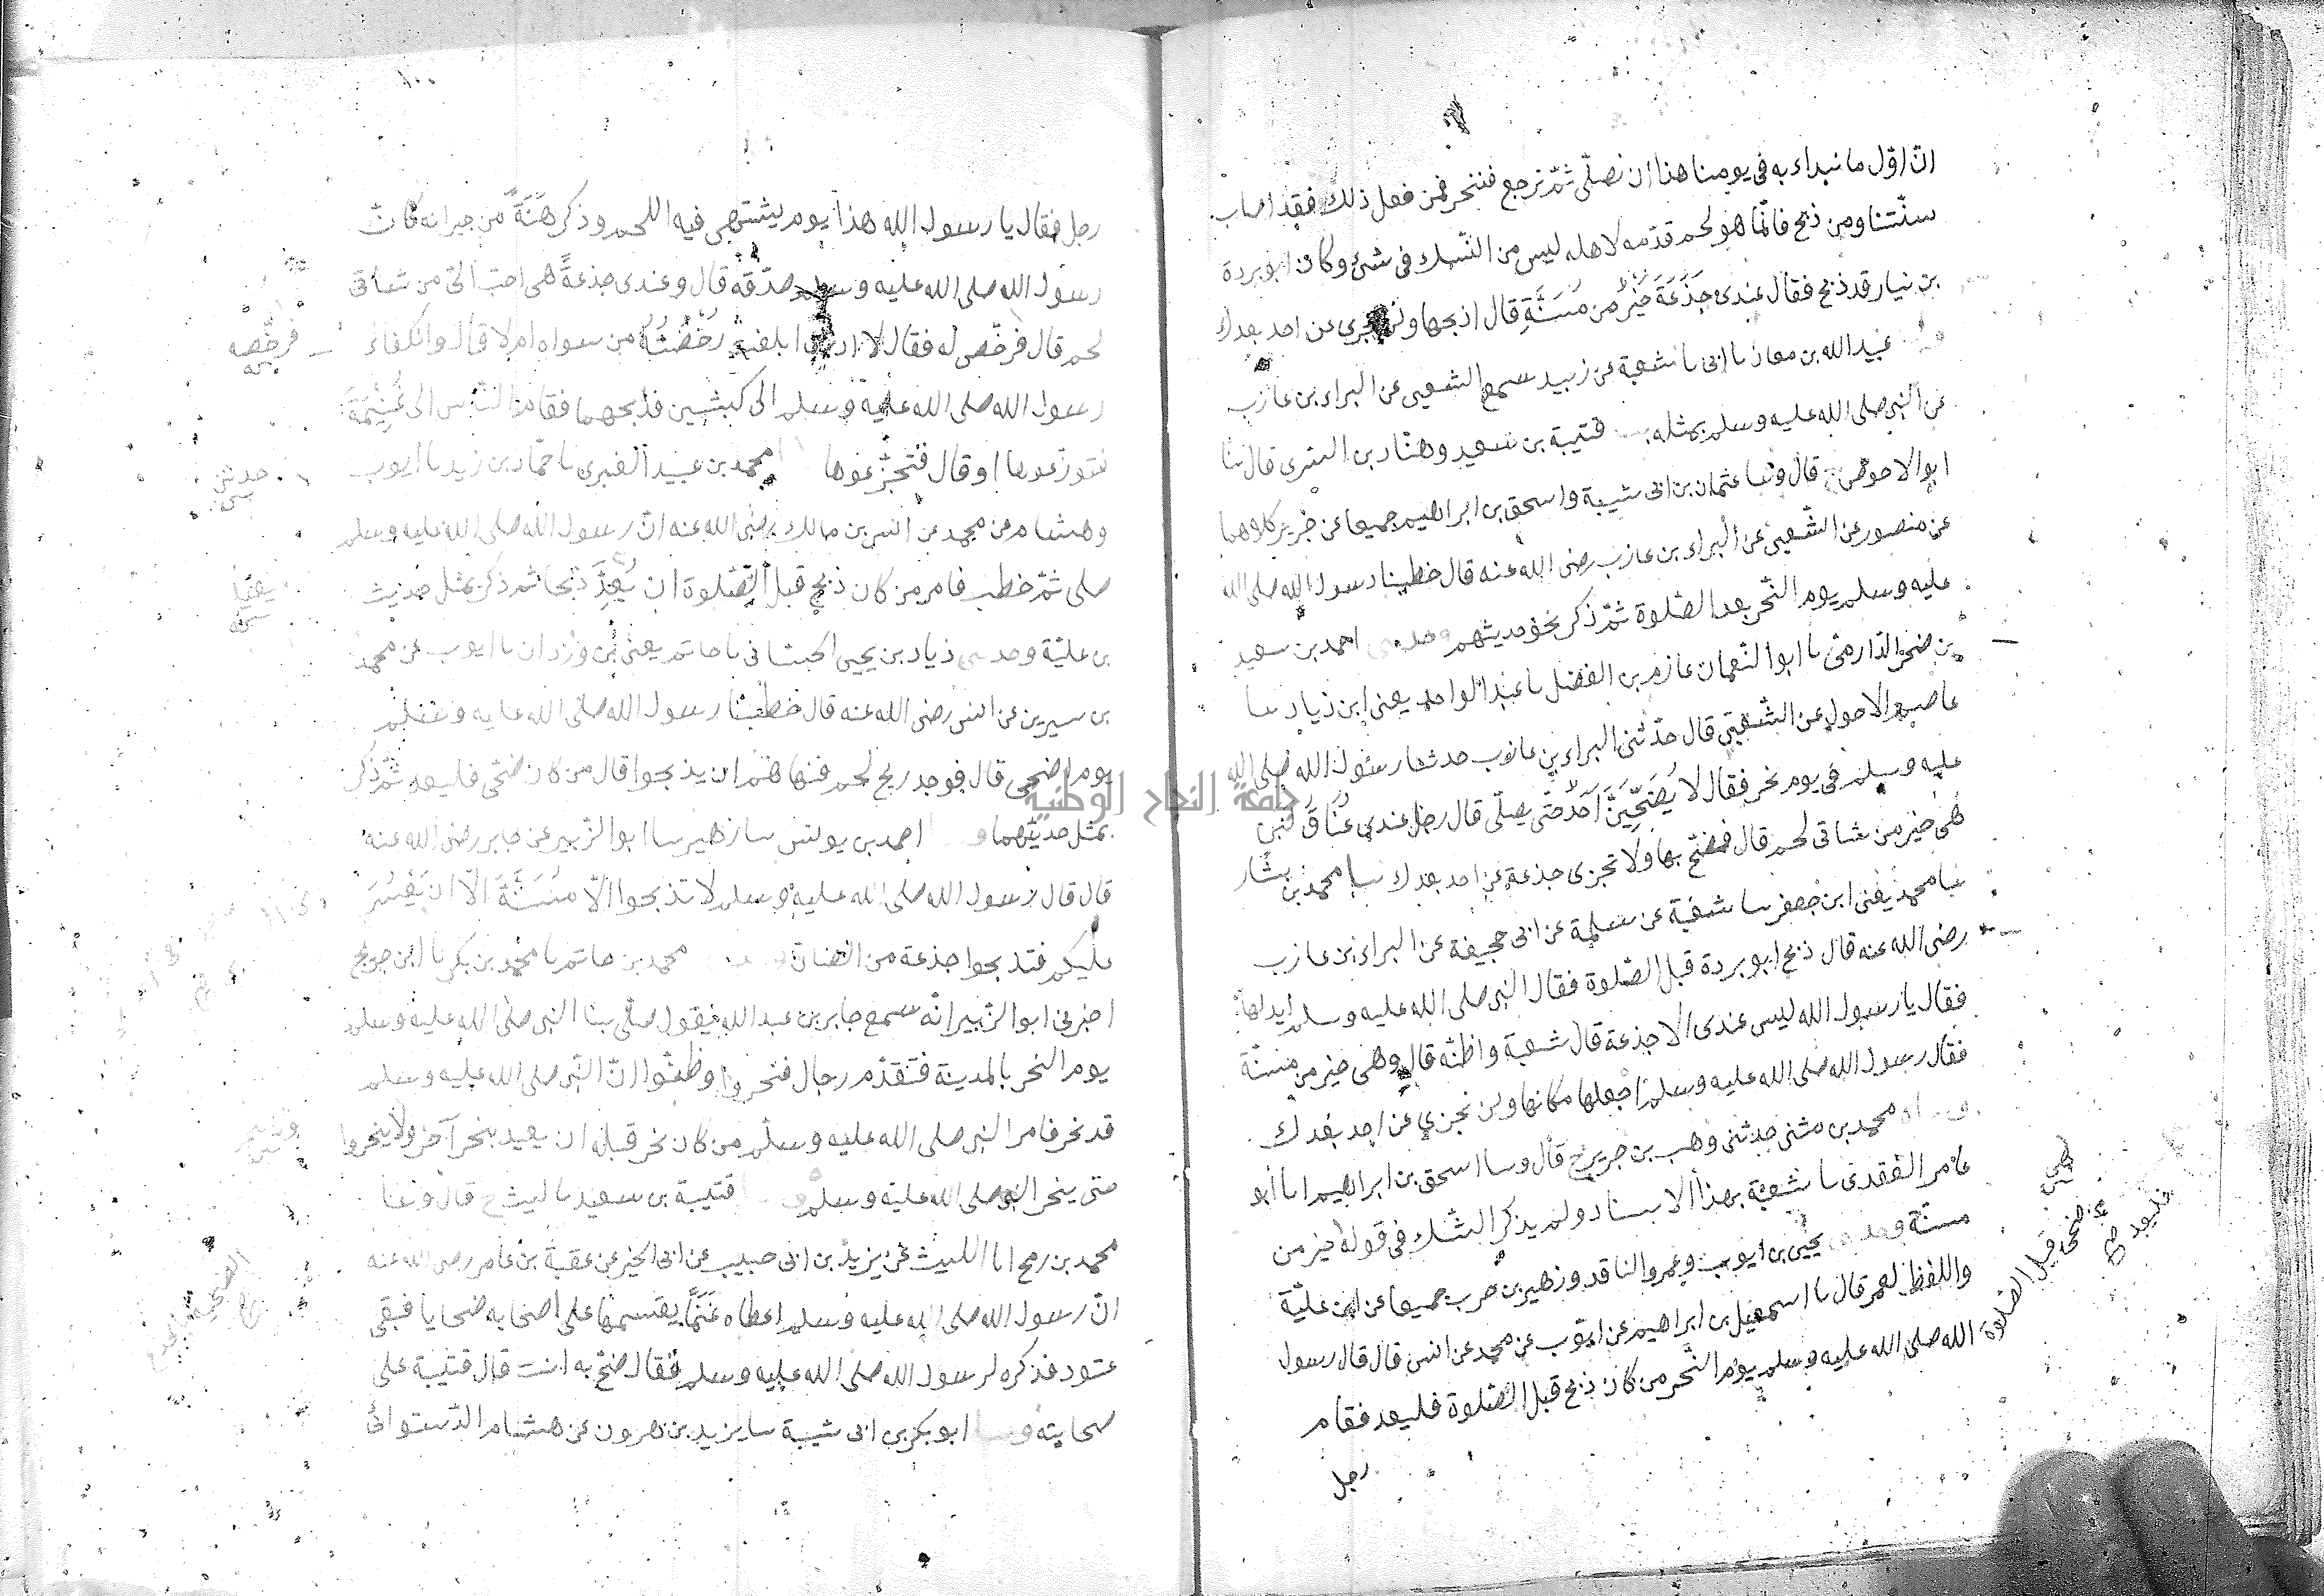 انّ اوّل ما نبداء به فى يومنا هذا ان نصلّى ثمّ نرجع فننحر فمن فعل ذلك فقد اصاب
سنّتنا ومن ذبح فانّما هو لحم قدّمه لاهله ليس من النّسك فى شئ وكان ابو بردة
بن نيار قد ذبح فقال عندى جَذَعَة خَيْرٌ من مُسَنَّةٍ قال اذبحها ولن تجزى عن احد بعدك
عبيد الله بن معاذ نا ابى نا شعبة عن زبيد سمع الشعبى عن البراء بن عازب
عن النبى صلى الله عليه وسلم بمثله قتيبة بن سعيد وهنّاد بن السرى قال ثنا
ابو الاحوص ح قال وثنا عثمان بن ابى شيبة واسحق بن ابراهيم جميعا عن جرير كلاهما
عن منصور عن الشّعبى عن البراء بن عازب رضى الله عنه قال خطبنا رسول الله صلى الله
عليه وسلم يوم النّحر بعد الصّلوة ثمّ ذكر نحو حديثهم وحدثنى احمد بن سعيد
بن صخر الدّارمىّ نا ابو النّعمان عازم بن الفضل نا عبد الواحد يعنى ابن زياد سا
عاصم الاحول عن الشّعبىّ قال حدّثنى البراء بن عازب حدثنا رسول الله صلى الله
عليه وسلم فى يوم نحر فقال لا يُضَحِّيَنَّ اَحَدٌ حتّى يصلّى قال رجل عندى عَنَاقُ لَبَنٍ
هى خير من شاتى لحم قال فضحّ بها ولا تجزى جذعة عن احد بعدك سا محمد بن بشار
سا محمد يعنى ابن جعفر سا شعبة عن سلمة عن ابى جحيفة عن البراء بن عازب
رضى الله عنه قال ذبح ابو بردة قبل الصّلوة فقال النبى صلى الله عليه وسلم ابدلها
فقال يا رسول الله ليس عندى الا جذعة قال شعبة واظنّه قال وهى خير من مسنّة
فقال رسول الله صلى الله عليه وسلم اجعلها مكانها ولن تجزى عن احد بعدك
محمد بن مثنى حدثنى وهب بن جرير ح قال وسا اسحق بن ابراهيم انا ابو
عامر العقدى سا شعبة بهذا الاسناد ولم يذكر الشّك فى قوله خير من
مسنّة وحدثنى يحيى بن ايوب وعمرو الناقد وزهير بن حرب جميعا عن ابن عليّة
واللفظ لعمر قال نا اسمعيل بن ابراهيم عن ايّوب عن محمد عن انس قال قال رسول
الله صلى الله عليه وسلم يوم النّحر من كان ذبح قبل الصّلوة فليعد فقام
رجل
رجل فقال يا رسول الله هذا يوم يشتهى فيه اللحم وذكر هَنَةً من جيرانه كانّ
رسول الله صلى الله عليه وسلم صدّقه قال وعندى جذعةً هى احبّ الىّ من شاتى
لحم قال فرخّص له فقال لا ادرى ابلغت رُخْصَتُهُ من سواه ام لا قال وانكفاء
فرخّصه
رسول الله صلى الله عليه وسلم الى كبشين فذبحهما فقام النّاس الى غُنَيْمَةَ
فتوزّعوها او قال فتجزّعوها محمد بن عبيد الغبرى نا حمّاد بن زيد نا ايوب
حدثنى
وهشام عن محمد عن انس بن مالك رضى الله عنه انّ رسول الله صلى الله عليه وسلم
صلى ثمّ خطب فامر من كان ذبح قبل الصّلوة ان يُعِدَّ ذبحا ثم ذكر بمثل حديث
بن عليّة وحدثنى زياد بن يحيى الحسّانى نا حاتم يعنى بن وردان نا ايوب عن محمد
بن سيرين عن انس رضى الله عنه قال خطبنا رسول الله صلى الله عليه وسلم
يوم اضحى قال فوجد ريح لحم فنهاهم ان يذبحوا قال من كان ضحّى فليعد ثمّ ذكر
جامعة النجاح الوطنية
بمثل حديثهما احمد بن يونس سا زهير سا ابو الزّبير عن جابر رضى الله عنه
قال قال رسول الله صلى الله عليه وسلم لا تذبحوا الاّ مُسَنَّةً الّا ان يَعْسُرَ
عليكم فتذبحوا جذعة من الضان محمد بن حاتم نا محمد بن بكر نا ابن جريج
اخبرنى ابو الزّبير انّه سمع جابر بن عبد الله يقول صلّى بنا النبى صلى الله عليه وسلم
يوم النحر بالمدينة فتقدّم رجال فنحروا وظنّوا انّ النّبى صلى الله عليه وسلم
قد نحر فامر النبى صلى الله عليه وسلم من كان نحر قبله ان يعيد بنحر آخر ولا ينحروا
حتى ينحر النبى صلى الله عليه وسلم قتيبة بن سعيد نا ليث ح قال وثنا
محمد بن رمح انا الليث عن يزيد بن ابى حبيب عن ابى الخير عن عقبة بن عامر رضى الله عنه
انّ رسول الله صلى الله عليه وسلم اعطاه غَنَمًا يقسمها على اصحابه ضحايا فبقى
عتود فذكره لرسول الله صلى الله عليه وسلم فقال ضحّ به انت قال قتيبة على
صحابته وسا ابو بكر بن ابى شيبة سا يزيد بن هرون عن هشام الدّستوائى